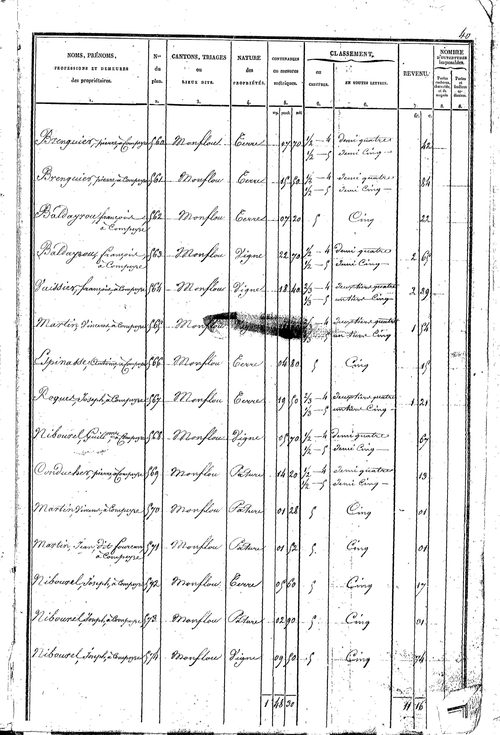 40
NOMS, PRÉNOMS, PROFESSIONS ET DEMEURES des propriétaires. N.os du plan. CANTONS, TRIAGES ou LIEUX DITS. NATURE des PROPRIÉTÉS. CONTENANCES en mesures métriques. CLASSEMENT, en CHIFFRES. EN TOUTES LETTRES. REVENU. NOMBRE D'OUVERTURES imposables.
1. 2. 3. 4. 5. 6. 6. 7. 8. 8.
Brenguier, pierre, à Compeyre 560 Monflou Terre 07 70 1/2 — 4 demi quatre
1/2 — 5 demi Cinq 42
Brenguier, pierre, à Compeyre 561 Monflou Terre 15 50 1/2 — 4 demi quatre
1/2 — 5 demi Cinq 84
Baldayrou, françois, à Compeyre 562 Monflou Terre 07 20 5 Cinq 22
Baldayrou, françois, à Compeyre 563 Monflou Vigne 22 70 1/2 — 4 demi quatre
1/2 — 5 demi Cinq 2 65
Vaissier, françois, à Compeyre 564 Monflou Vigne 18 40 2/3 — 4 deux tiers quatre
1/3 — 5 un tiers Cinq 2 29
Martin, Vincent, à Compeyre 565 Monflou — 4 deux tiers quatre
— 5 un tiers Cinq 1 54
Espinasse, à Compeyre 566 Monflou Terre 04 80 5 Cinq 15
Roques, Joseph, à Compeyre 567 Monflou Terre 19 50 2/3 — 4 deux tiers quatre
1/3 — 5 un tiers Cinq 1 21
Nibourel, à Compeyre 568 Monflou Vigne 05 70 1/2 — 4 demi quatre
1/2 — 5 demi Cinq 67
Conducher, pierre, à Compeyre 569 Monflou Pâture 14 20 1/2 — 4 demi quatre
1/2 — 5 demi Cinq 13
Martin, Vincent, à Compeyre 570 Monflou Pâture 01 28 5 Cinq 01
Martin, Jean, dit à Compeyre 571 Monflou Pâture 01 52 5 Cinq 01
Nibourel, Joseph, à Compeyre 572 Monflou Terre 05 60 5 Cinq 17
Nibourel, Joseph, à Compeyre 573 Monflou Pâture 02 90 5 Cinq 01
Nibourel, Joseph, à Compeyre 574 Monflou Vigne 09 50 5 Cinq 74
1 48 30 11 16